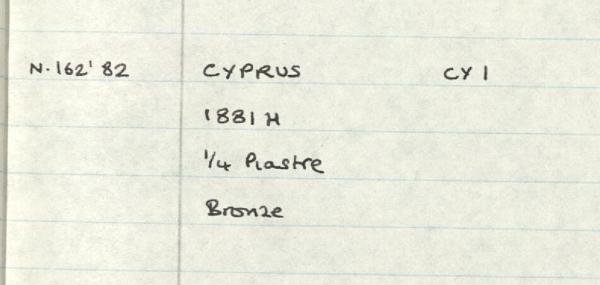 N.162'82 CYPRUS CY 1
1881 H
1/4 Piastre
Bronze